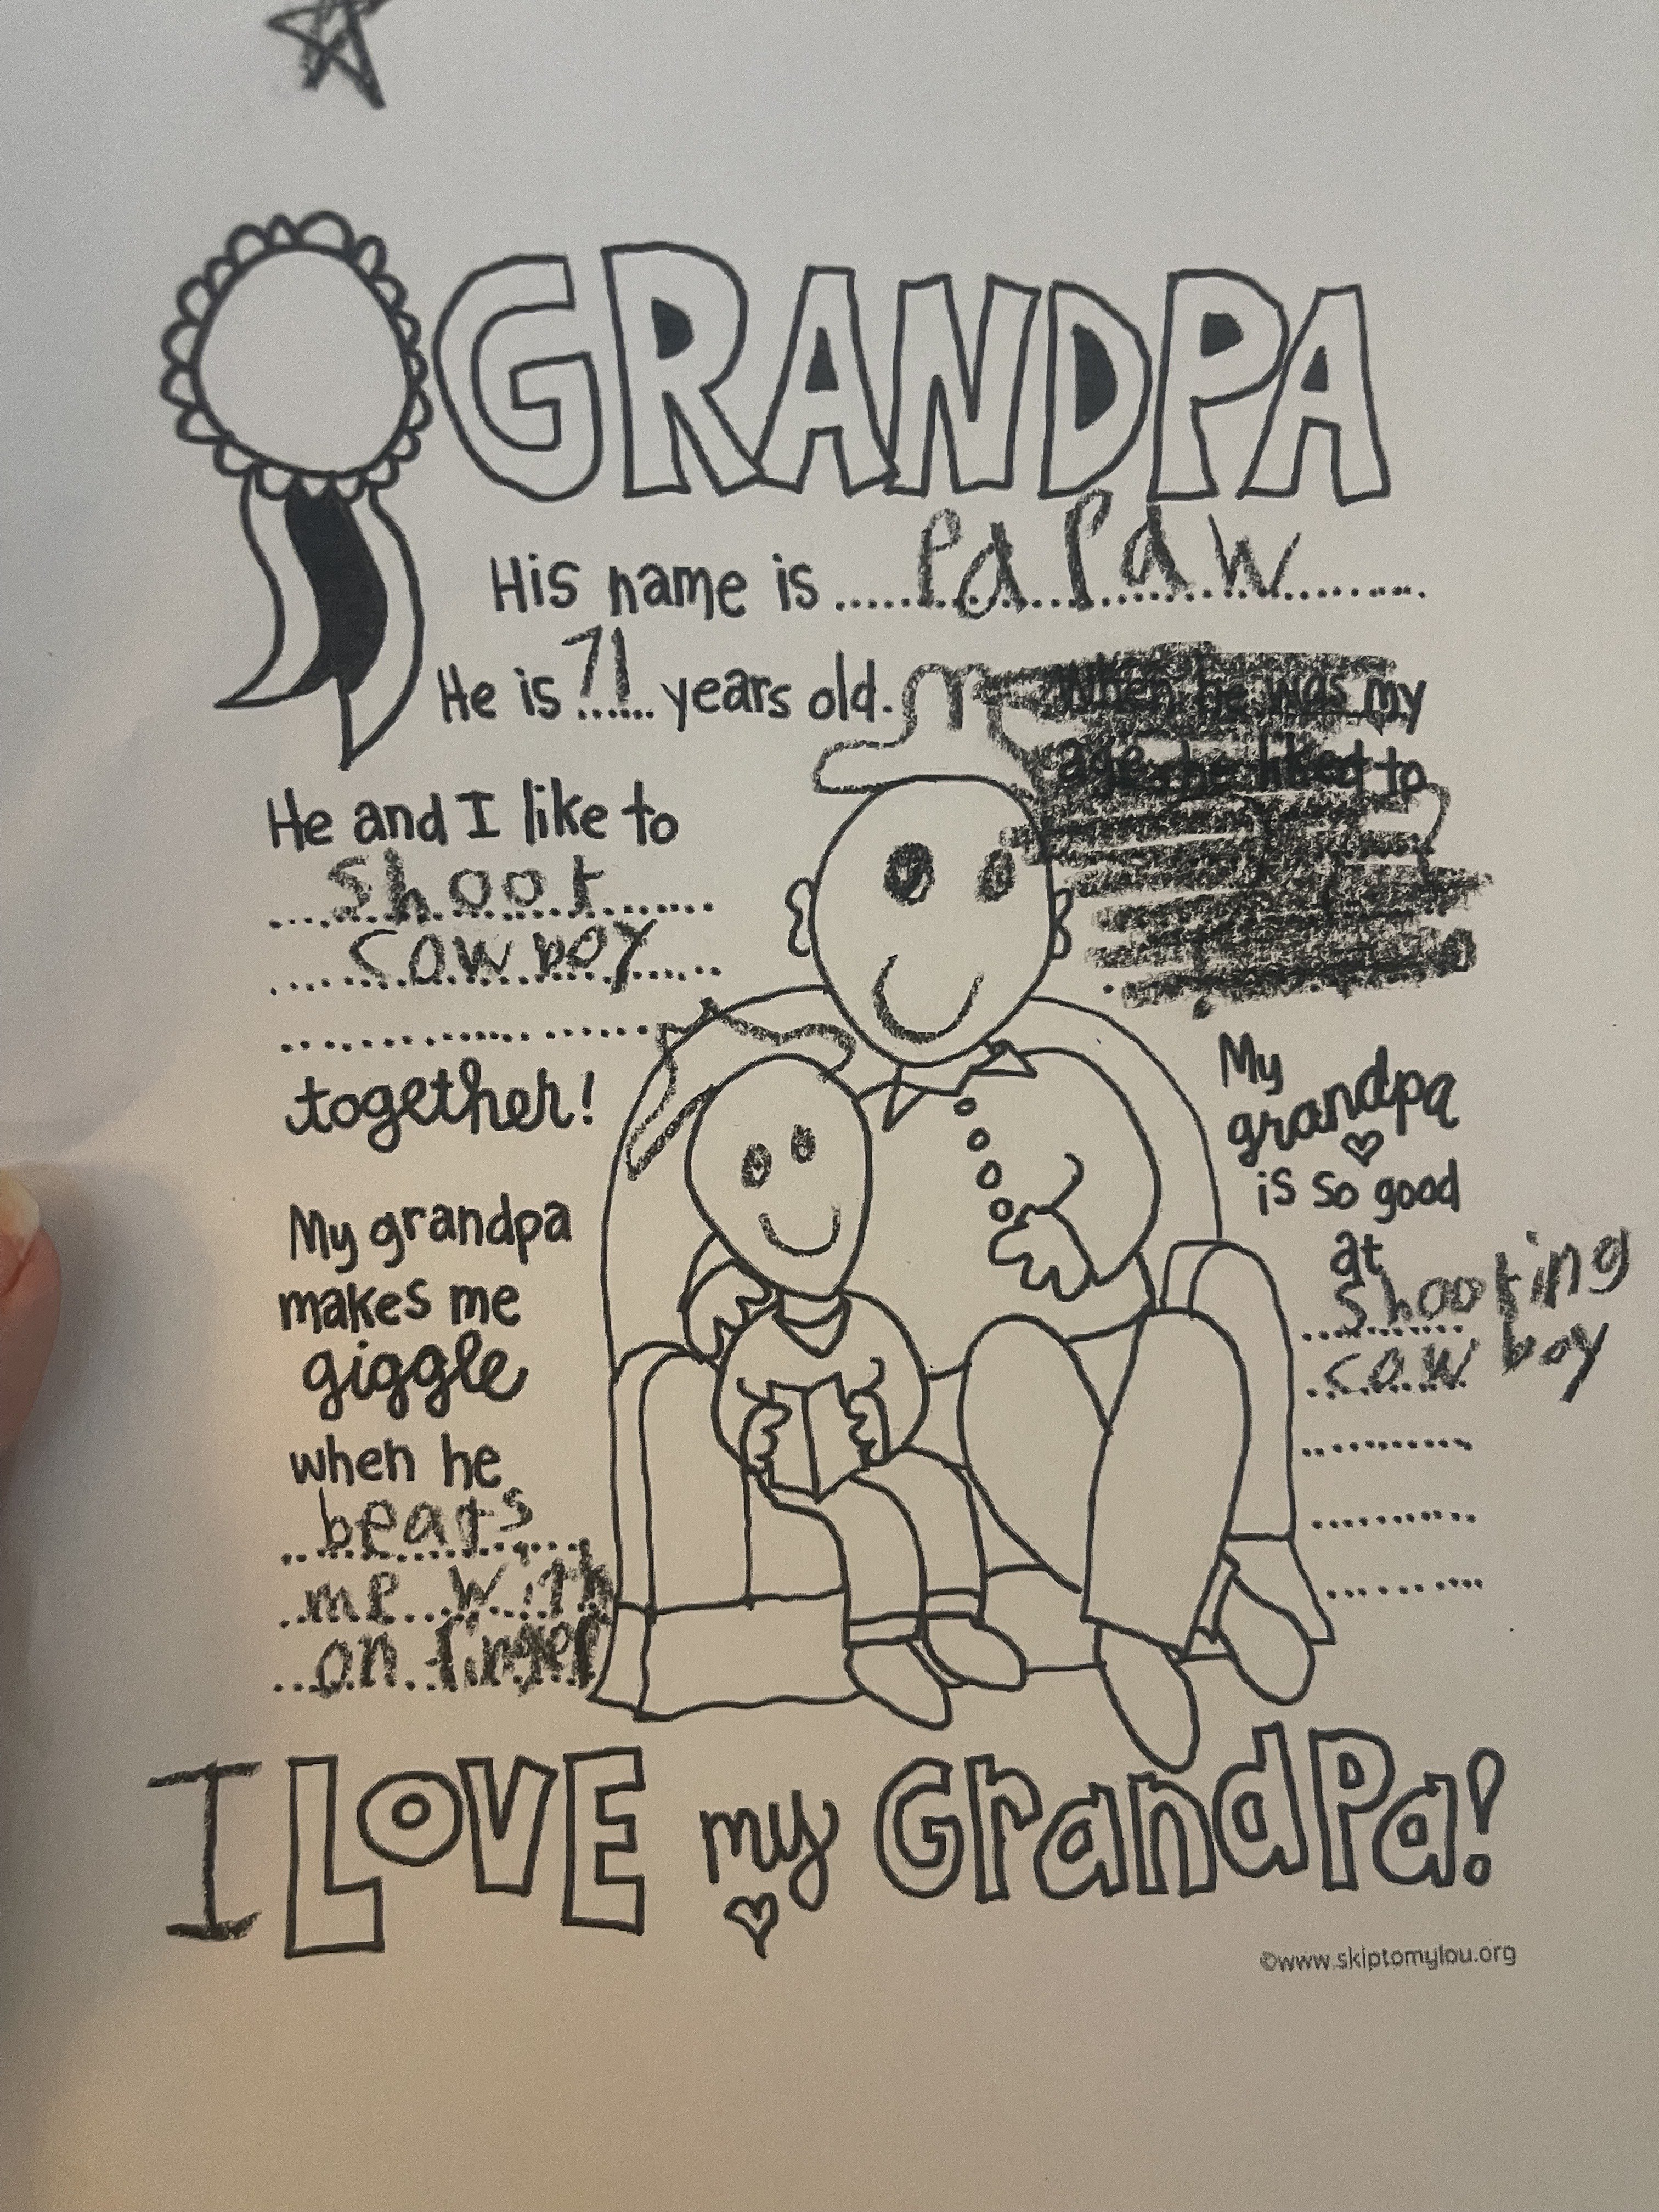 GRANDPA
His name is PaPaw
He is 71 years old.
When he was my
age he liked to
He and I like to
shoot
cowboy
together!
My
grandpa
is so good
at
shooting
cowboy
My grandpa
makes me
giggle
when he
beats
me with
on finger
I LOVE my GrandPa!
©www.skiptomylou.org